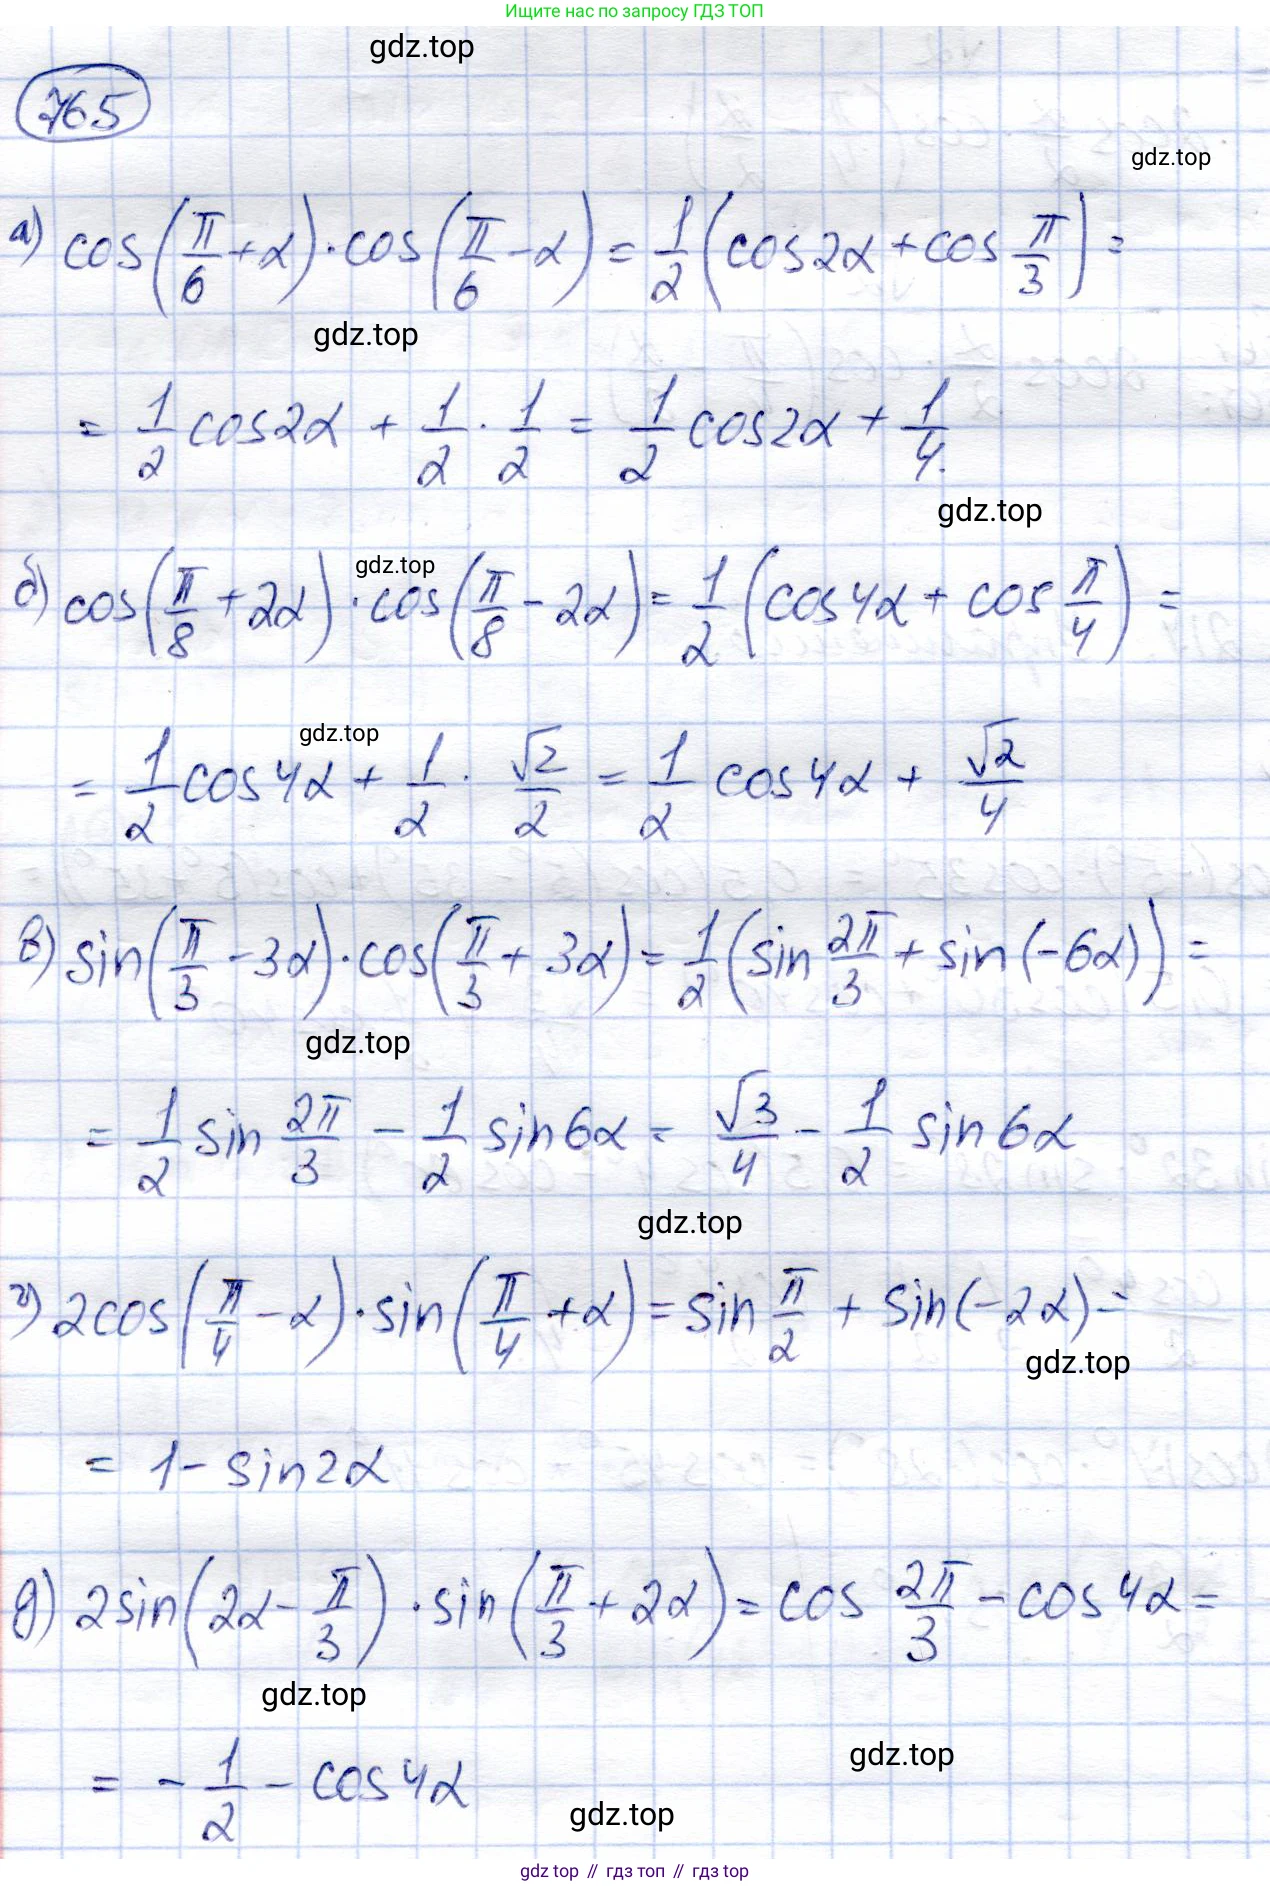 Ищите нас по запросу ГДЗ ТОП
gdz.top
765
gdz.top
а) cos(π/6 + α) · cos(π/6 - α) = 1/2 (cos2α + cos π/3) =
gdz.top
= 1/2 cos2α + 1/2 · 1/2 = 1/2 cos2α + 1/4.
gdz.top
gdz.top
б) cos(π/8 + 2α) · cos(π/8 - 2α) = 1/2 (cos4α + cos π/4) =
gdz.top
= 1/2 cos4α + 1/2 · √2/2 = 1/2 cos4α + √2/4
в) sin(π/3 - 3α) · cos(π/3 + 3α) = 1/2 (sin 2π/3 + sin(-6α)) =
gdz.top
= 1/2 sin 2π/3 - 1/2 sin6α = √3/4 - 1/2 sin6α
gdz.top
г) 2cos(π/4 - α) · sin(π/4 + α) = sin π/2 + sin(-2α) =
gdz.top
= 1 - sin2α
д) 2sin(2α - π/3) · sin(π/3 + 2α) = cos 2π/3 - cos4α =
gdz.top
= - 1/2 - cos4α
gdz.top
gdz.top
gdz top // гдз топ // гдз top